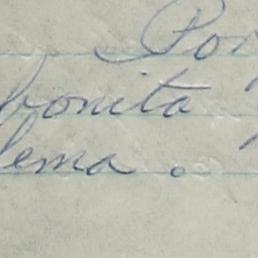 Por
bonita
lema.